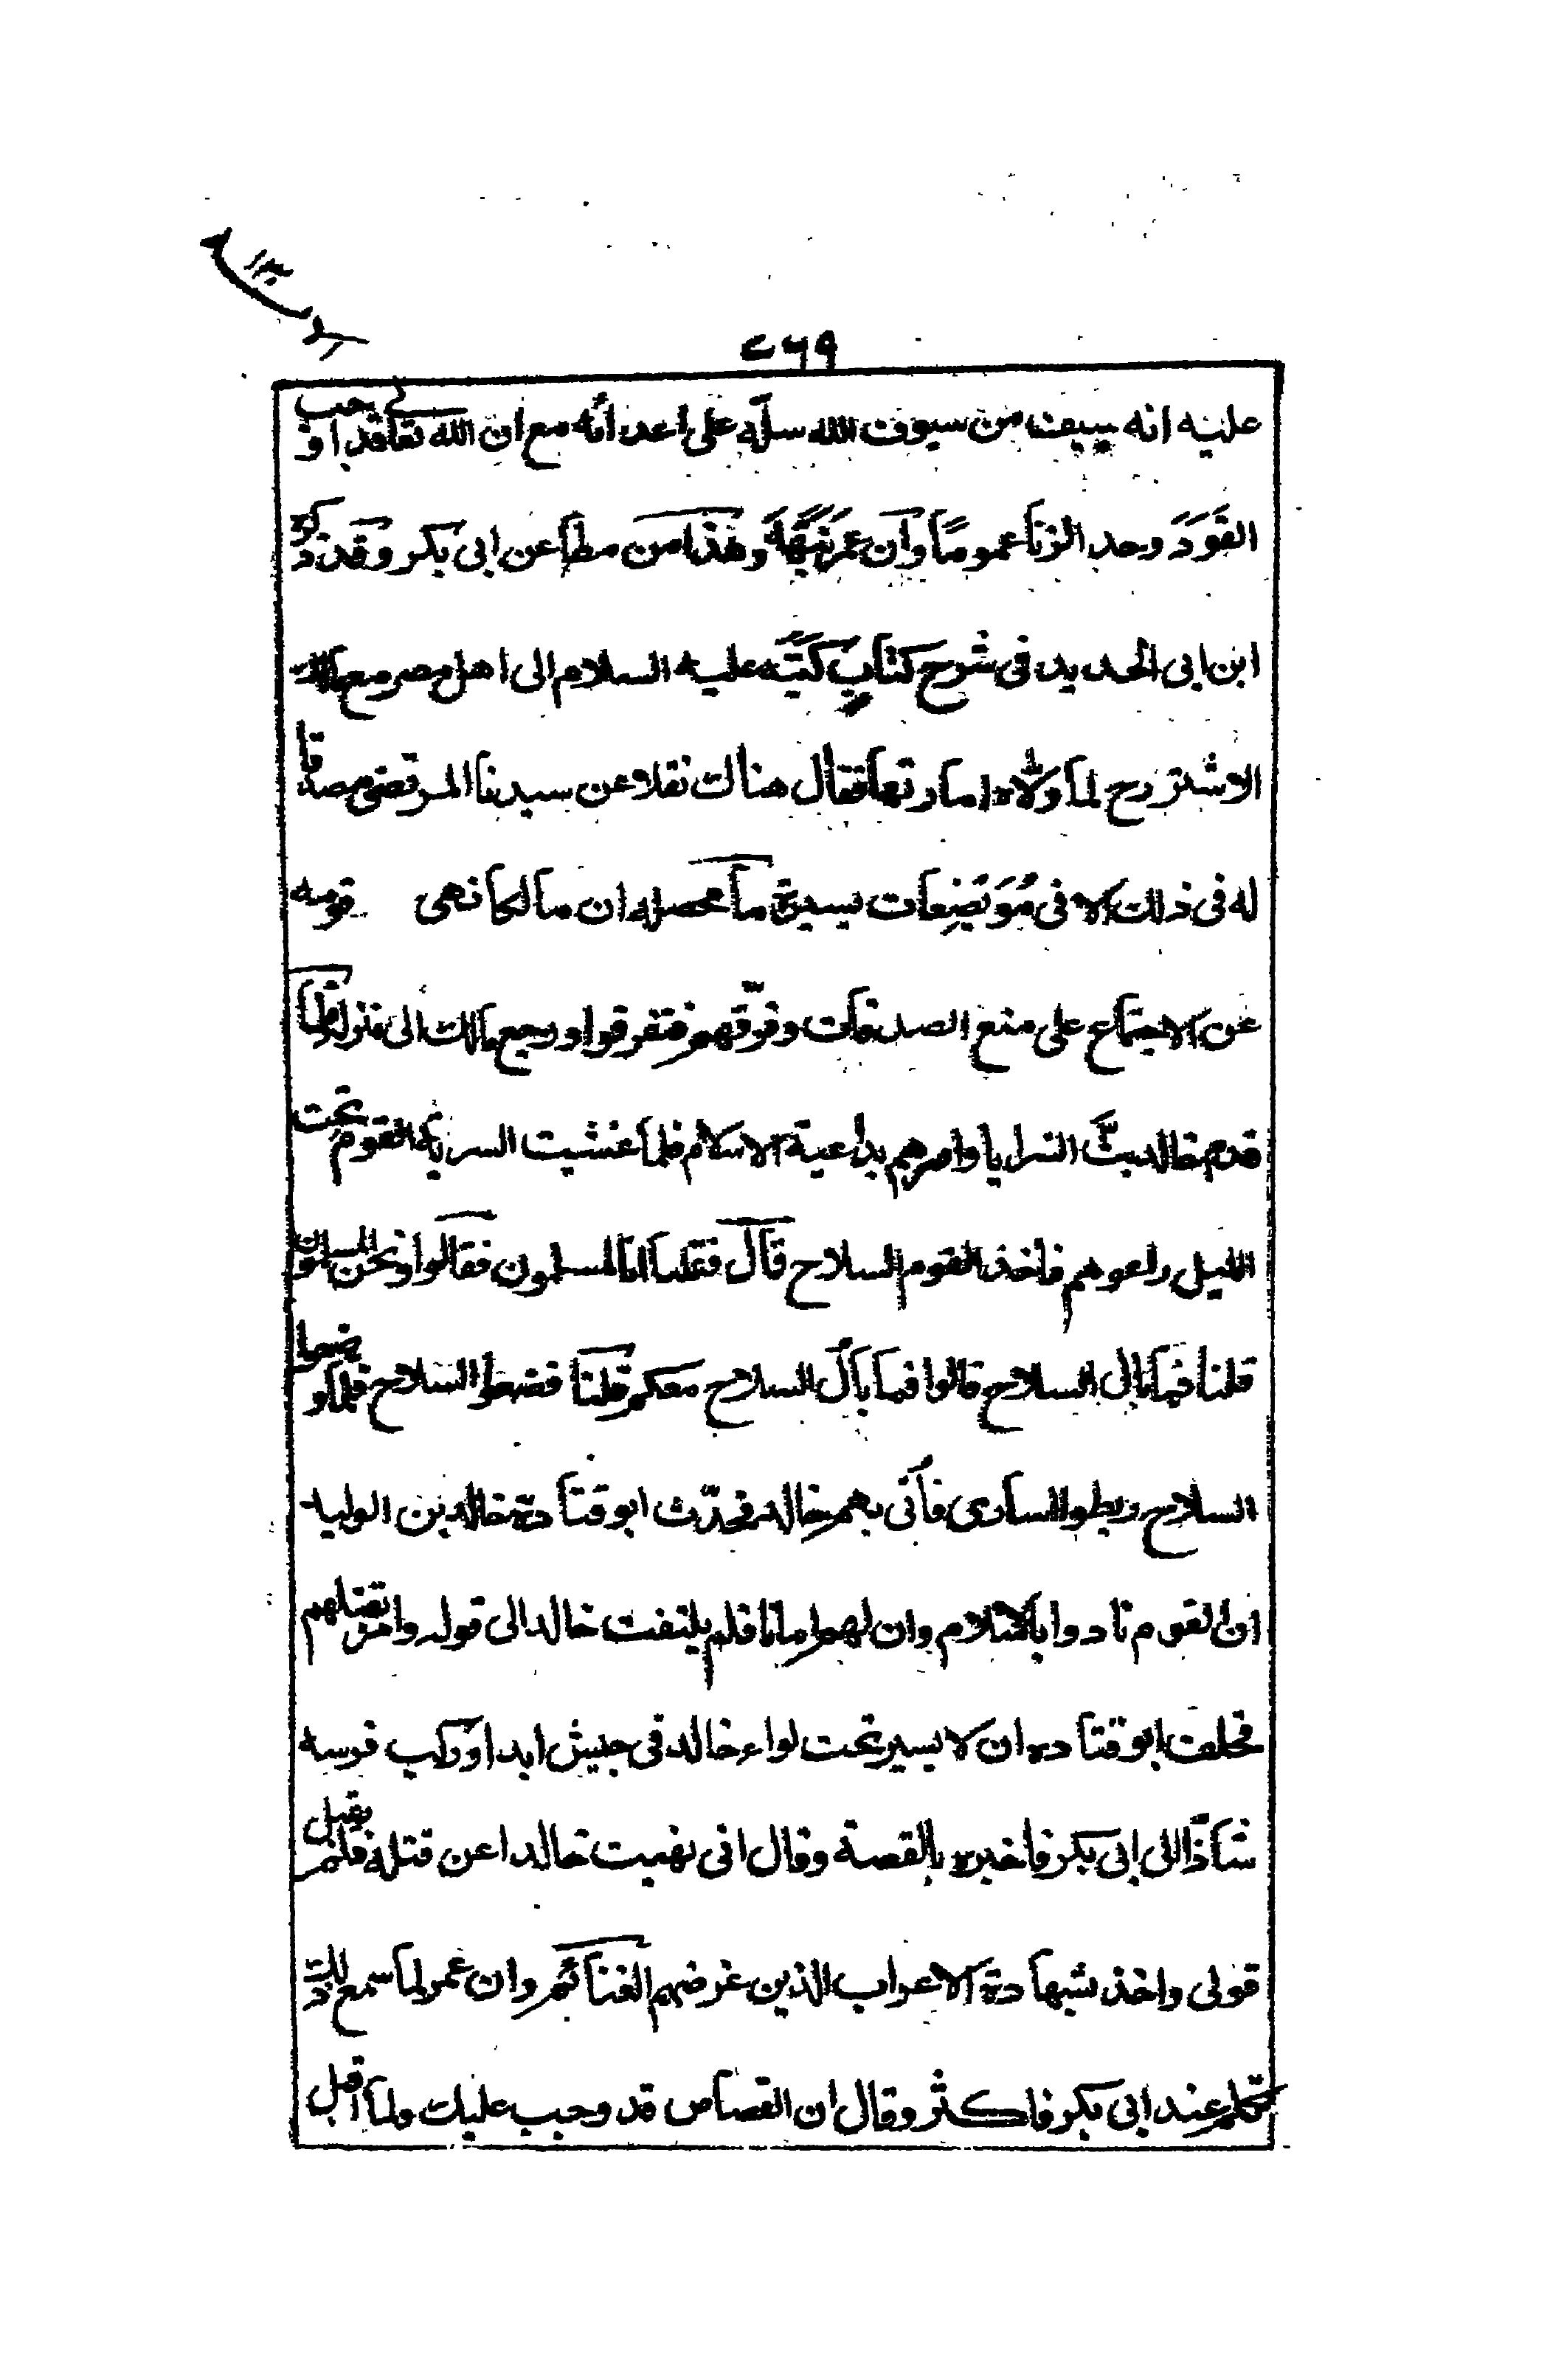 ٢٦٩
عليه انه سيف من سيوف الله سلّه على اعدائه مع ان الله تعا قد اوجب
القَوَدَ وحد الزنا عموما وان عمر نبّهه وهذا من مطاعن ابى بكر وقد ذكره
ابن ابى الحديد فى شرح كتابٍ كتبه عليه السلام الى اهل مصر مع مالك
الاشتر رح لما ولاه امارتها فقال هناك نقلا عن سيدنا المرتضى مصدقا
له فى ذلك الا فى مُوَيضِعات يسيرة ما محصله ان مالكا نهى قومه
عن الاجتماع على منع الصدقات وفرّقهم فتفرقوا ورجع مالك الى منزله فلما
قدم خالد بثّ السرايا وامرهم بداعية الاسلام فلما غشيت السرية القوم تحت
الليل راعوهم فاخذ القوم السلاح قال فقلنا انا المسلمون فقالوا ونحن المسلمون
قلنا فما بال السلاح قالوا فما بال السلاح معكم قلنا فضعوا السلاح فلما وضعوا
السلاح ربطوا اسارى فأتى بهم خالد فحدّث ابو قتادة خالد بن الوليد
ان القوم نادوا بالاسلام وان لهم امانا فلم يلتفت خالد الى قوله وامر بقتلهم
فحلف ابو قتاده ان لا يسير تحت لواء خالد فى جيش ابدا وركب فرسه
شاذّا الى ابى بكر فاخبره بالقصة وقال انى نهيت خالدا عن قتله فلم يقبل
قولى واخذ بشهادة الاعراب الذين غرضهم الغنائم وان عمر لما سمع ذلك
تكلم عند ابى بكر فاكثر وقال ان القصاص قد وجب عليك ولما اقبل